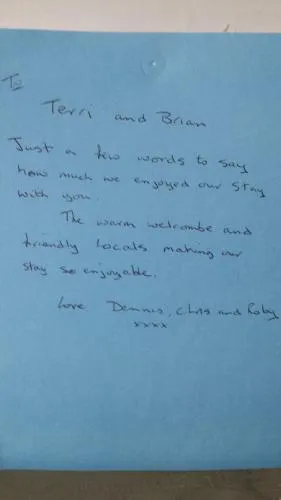 To
Terri and Brian
Just a few words to say
how much we enjoyed our stay
with you.
The warm welcombe and
friendly locals making our
stay so enjoyable.
love Dennis, Chris and Roby
xxxx